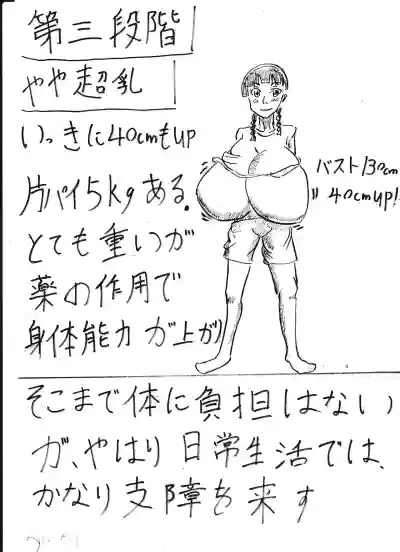 第三段階
やや超乳
いっきに40cmもup
バスト130cm
40cmup!
片パイ5kgある。
とても重いが
薬の作用で
身体能力が上がり
そこまで体に負担はない
が、やはり日常生活では、
かなり支障を来す